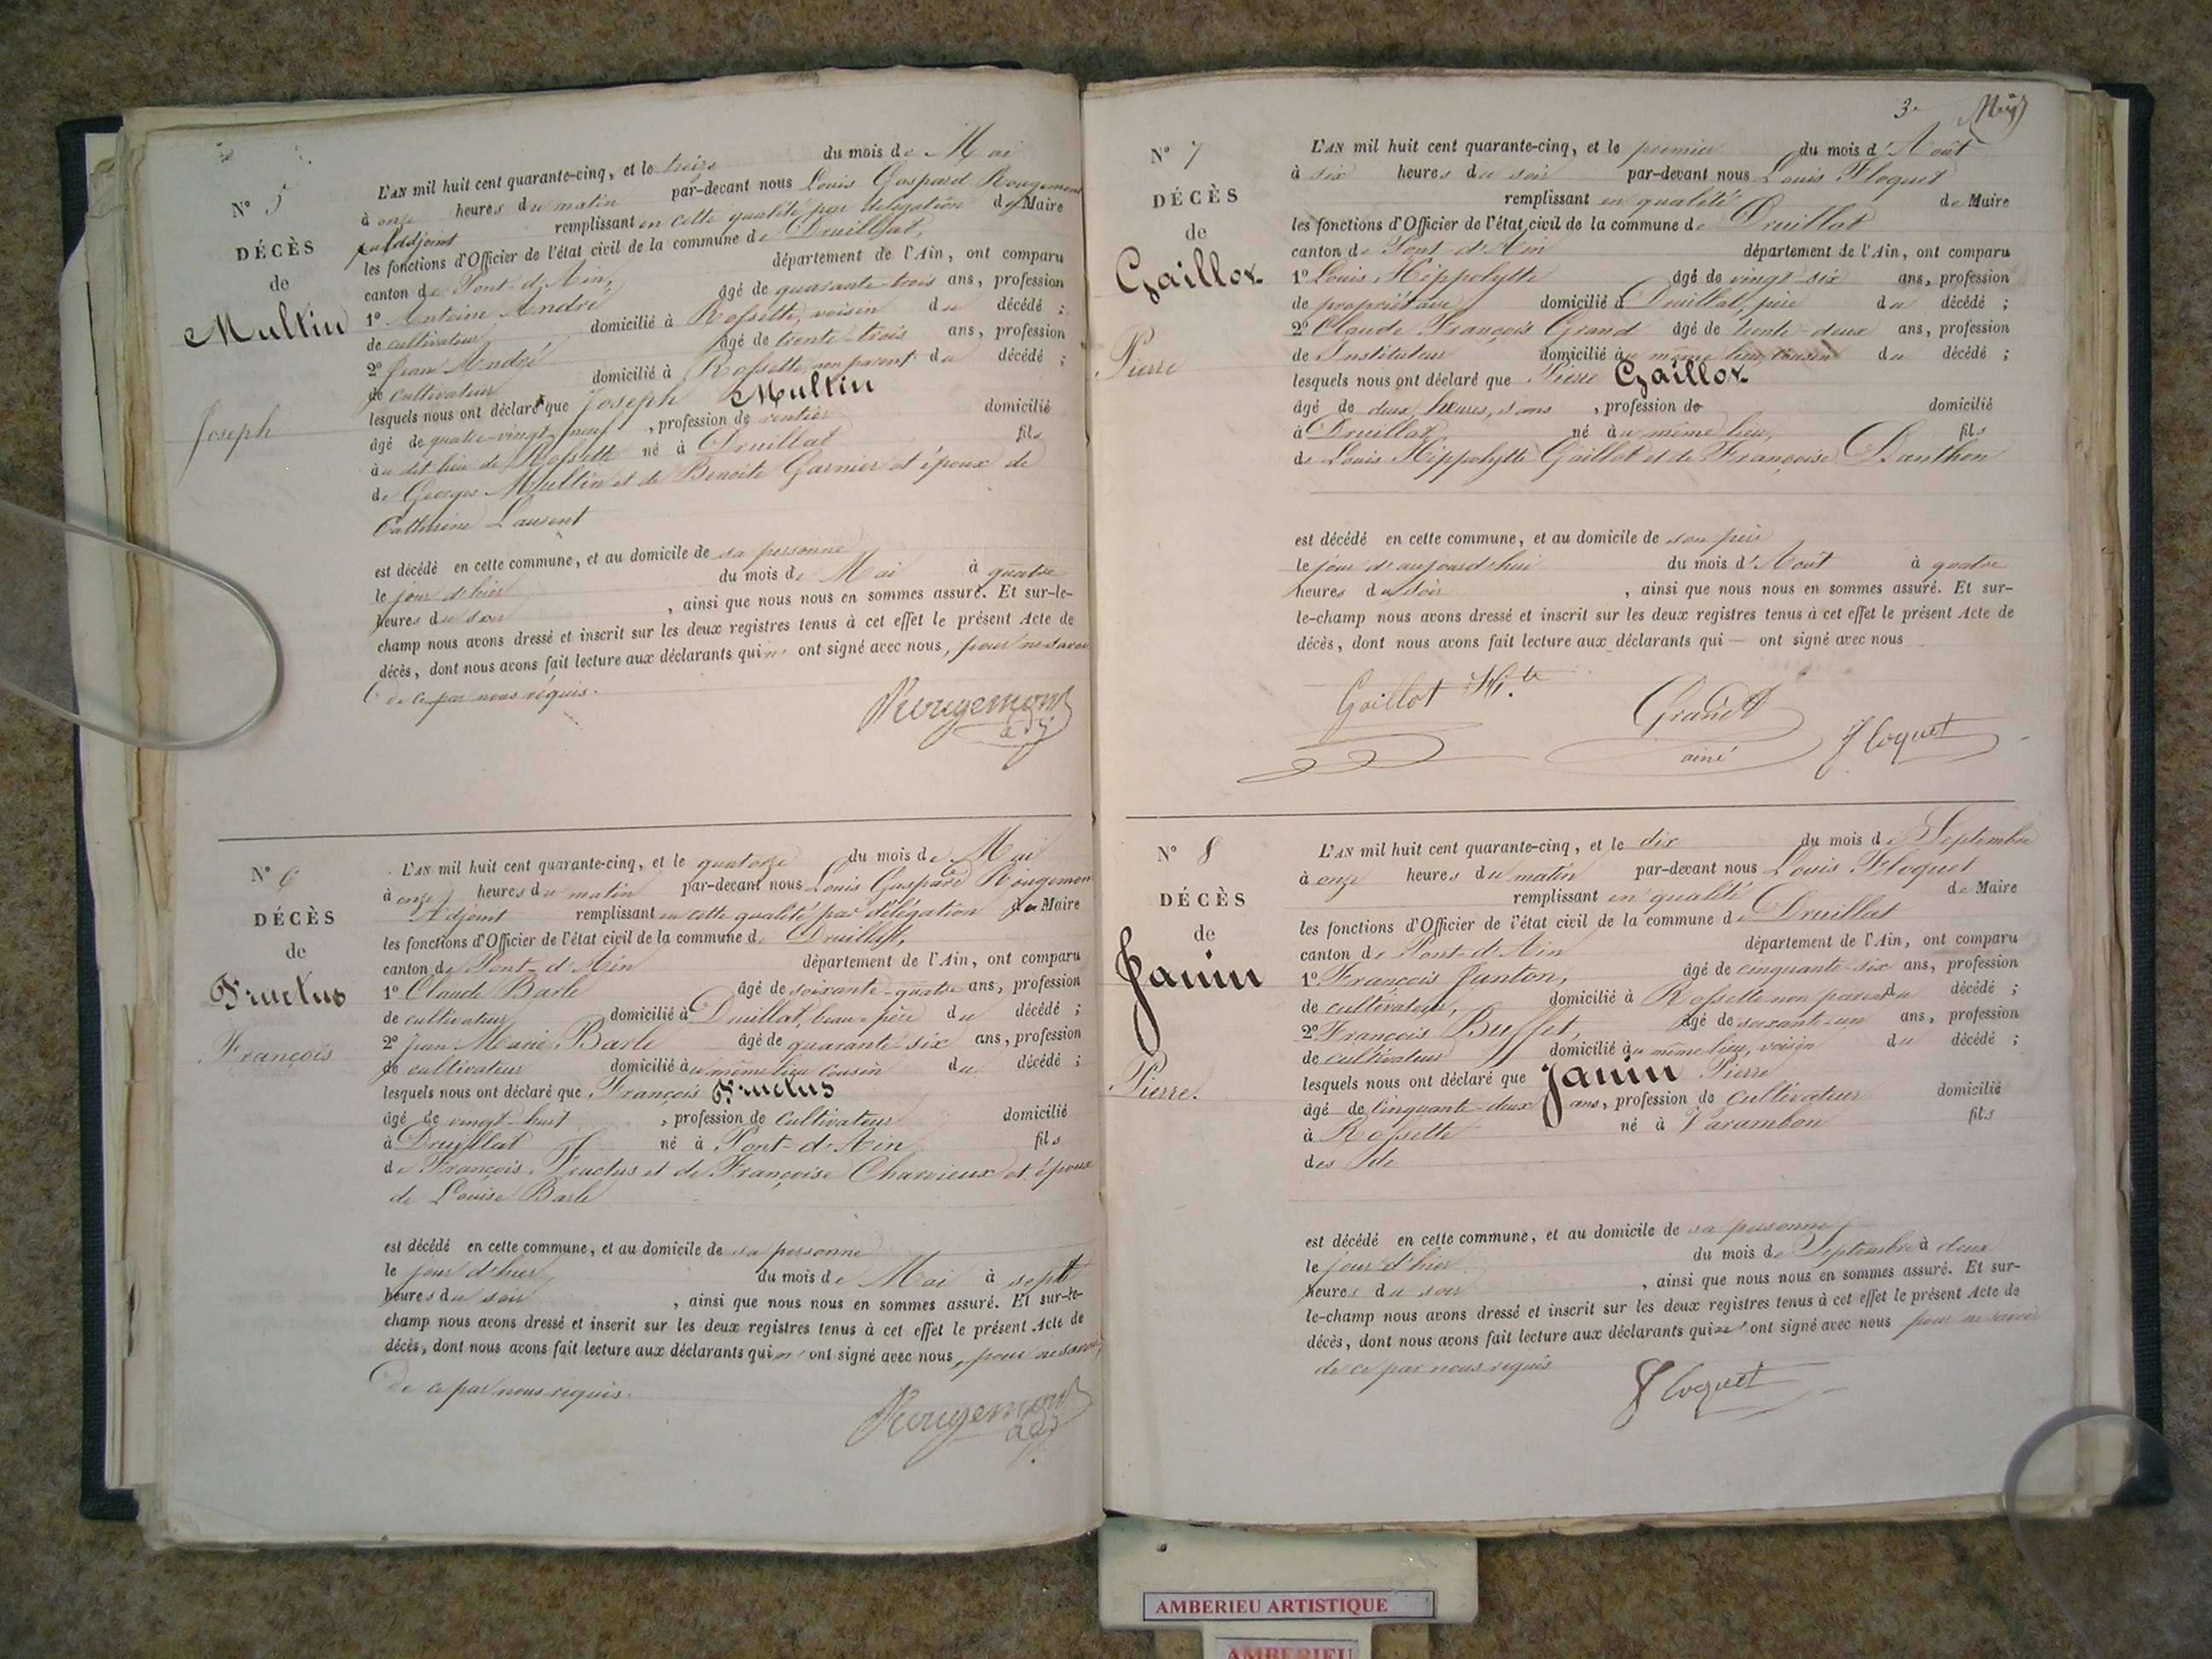 N° 5
DÉCÈS
de
Multin
Joseph
L'AN mil huit cent quarante-cinq, et le treize du mois de Mai
à onze heures du matin par-devant nous Louis Gaspard Rougemont
Adjoint remplissant en cette qualité par délégation du Maire
les fonctions d'Officier de l'état civil de la commune de Druillat,
canton de Pont-d'Ain, département de l'Ain, ont comparu
1° Antoine André âgé de quarante-trois ans, profession
de cultivateur domicilié à Rossette, voisin du décédé ;
2° Jean André âgé de trente-trois ans, profession
de cultivateur domicilié à Rossette non parent du décédé ;
lesquels nous ont déclaré que Joseph Multin
âgé de quatre-vingt-neuf , profession de rentier domicilié
au dit lieu de Rossette né à Druillat fils
de Georges Multin et de Benoite Garnier et époux de
Catherine Laurent
est décédé en cette commune, et au domicile de sa personne
le jour d'hier du mois de Mai à quatre
heures du soir , ainsi que nous nous en sommes assuré. Et sur-le-
champ nous avons dressé et inscrit sur les deux registres tenus à cet effet le présent Acte de
décès, dont nous avons fait lecture aux déclarants qui n' ont signé avec nous, pour ne savoir
de ce par nous réquis.
Rougemont
adj
N° 6
DÉCÈS
de
Fructus
François
L'AN mil huit cent quarante-cinq, et le quatorze du mois de Mai
à onze heures du matin par-devant nous Louis Gaspard Rougemont
Adjoint remplissant en cette qualité par délégation du Maire
les fonctions d'Officier de l'état civil de la commune de Druillat,
canton de Pont-d'Ain département de l'Ain, ont comparu
1° Claude Barle âgé de soixante-quatre ans, profession
de cultivateur domicilié à Druillat, beau-père du décédé ;
2° Jean Marie Barle âgé de quarante-six ans, profession
de cultivateur domicilié au même lieu cousin du décédé ;
lesquels nous ont déclaré que François Fructus
âgé de vingt-huit , profession de cultivateur domicilié
à Druillat né à Pont-d'Ain fils
de François Fructus et de Françoise Charvieux et époux
de Louise Barle
est décédé en cette commune, et au domicile de sa personne
le jour d'hier du mois de Mai à sept
heures du soir , ainsi que nous nous en sommes assuré. Et sur-le-
champ nous avons dressé et inscrit sur les deux registres tenus à cet effet le présent Acte de
décès, dont nous avons fait lecture aux déclarants qui n' ont signé avec nous, pour ne savoir,
de ce par nous requis.
Rougemont
adj
3e
N° 7
DÉCÈS
de
Gaillot
Pierre
L'AN mil huit cent quarante-cinq, et le premier du mois d'Août
à six heures du soir par-devant nous Louis Floquet
remplissant en qualité de Maire
les fonctions d'Officier de l'état civil de la commune de Druillat
canton de Pont-d'Ain département de l'Ain, ont comparu
1° Louis Hippolytte âgé de vingt-six ans, profession
de propriétaire domicilié à Druillat, père du décédé ;
2° Claude François Grand âgé de trente-deux ans, profession
de Instituteur domicilié au même lieu, cousin du décédé ;
lesquels nous ont déclaré que Pierre Gaillot
âgé de deux heures, sans , profession de domicilié
à Druillat, né au même lieu, fils
de Louis Hippolytte Gaillot et de Françoise Danthon
est décédé en cette commune, et au domicile de son père
le jour d'aujourd'hui du mois d'Août à quatre
heures du soir , ainsi que nous nous en sommes assuré. Et sur-
le-champ nous avons dressé et inscrit sur les deux registres tenus à cet effet le présent Acte de
décès, dont nous avons fait lecture aux déclarants qui — ont signé avec nous
Gaillot Hi.te Grand
ainé Floquet
N° 8
DÉCÈS
de
Janin
Pierre.
L'AN mil huit cent quarante-cinq, et le dix du mois de Septembre
à onze heures du matin par-devant nous Louis Floquet
remplissant en qualité de Maire
les fonctions d'Officier de l'état civil de la commune de Druillat
canton de Pont-d'Ain département de l'Ain, ont comparu
1° François Janton, âgé de cinquante-six ans, profession
de cultivateur, domicilié à Rossette non parent du décédé ;
2° François Buffet, âgé de soixante-un ans, profession
de cultivateur domicilié au même lieu, voisin du décédé ;
lesquels nous ont déclaré que Janin Pierre
âgé de cinquante-deux ans, profession de cultivateur domicilié
à Rossette né à Varambon fils
des de
est décédé en cette commune, et au domicile de sa personne
le jour d'hier du mois de Septembre à deux
heures du soir , ainsi que nous nous en sommes assuré. Et sur-
le-champ nous avons dressé et inscrit sur les deux registres tenus à cet effet le présent Acte de
décès, dont nous avons fait lecture aux déclarants qui n' ont signé avec nous pour ne savoir
de ce par nous requis
Floquet
AMBERIEU ARTISTIQUE
AMBERIEU